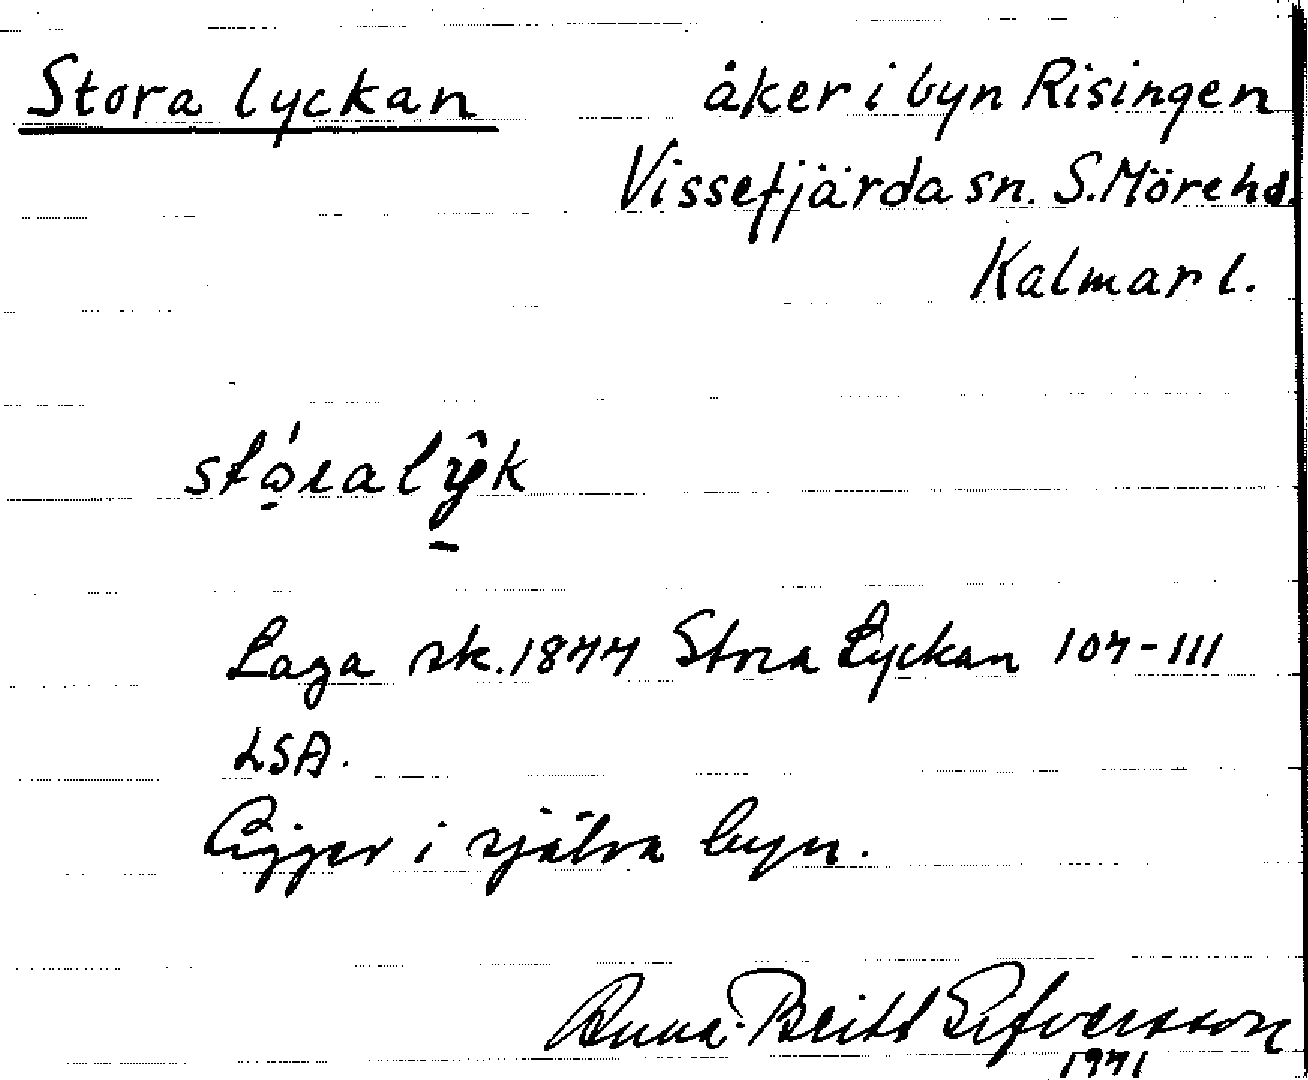 Stora lyckan åker i byn Risingen
Vissefjärda sn. S. Möre hd.
Kalmar l.
Laga sk. 1877 Stora Lyckan 107-111
LSA.
Ligger i själva byn.
Anna-Britt Sefversson
1971